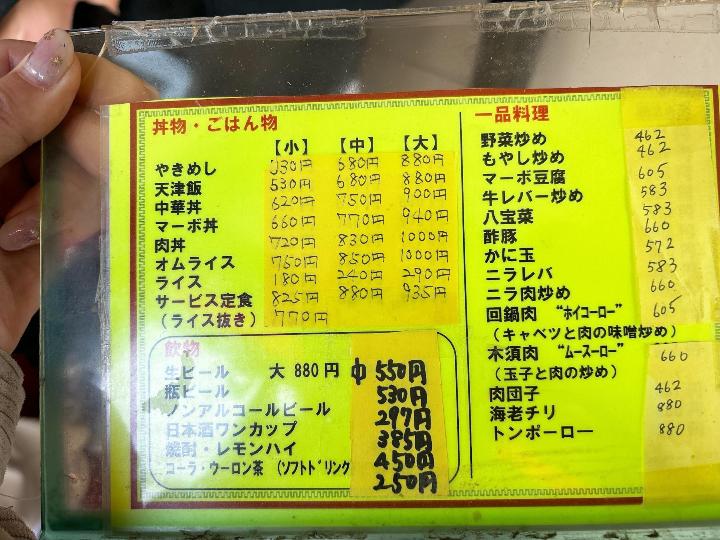 丼物・ごはん物
【小】 【中】 【大】
やきめし 530円 680円 880円
天津飯 530円 680円 880円
中華丼 620円 750円 900円
マーボ丼 660円 770円 940円
肉丼 720円 830円 1000円
オムライス 750円 850円 1000円
ライス 180円 240円 290円
サービス定食 825円 880円 935円
（ライス抜き） 770円
飲物
生ビール 大 880円 中 550円
瓶ビール 530円
ノンアルコールビール 297円
日本酒ワンカップ 385円
焼酎・レモンハイ 450円
コーラ・ウーロン茶 （ソフトドリンク 250円
一品料理
野菜炒め 462
もやし炒め 462
マーボ豆腐 605
牛レバー炒め 583
八宝菜 583
酢豚 660
かに玉 572
ニラレバ 583
ニラ肉炒め 660
回鍋肉 “ホイコーロー” 605
（キャベツと肉の味噌炒め）
木須肉 “ムースーロー” 660
（玉子と肉の炒め）
肉団子 462
海老チリ 880
トンポーロー 880